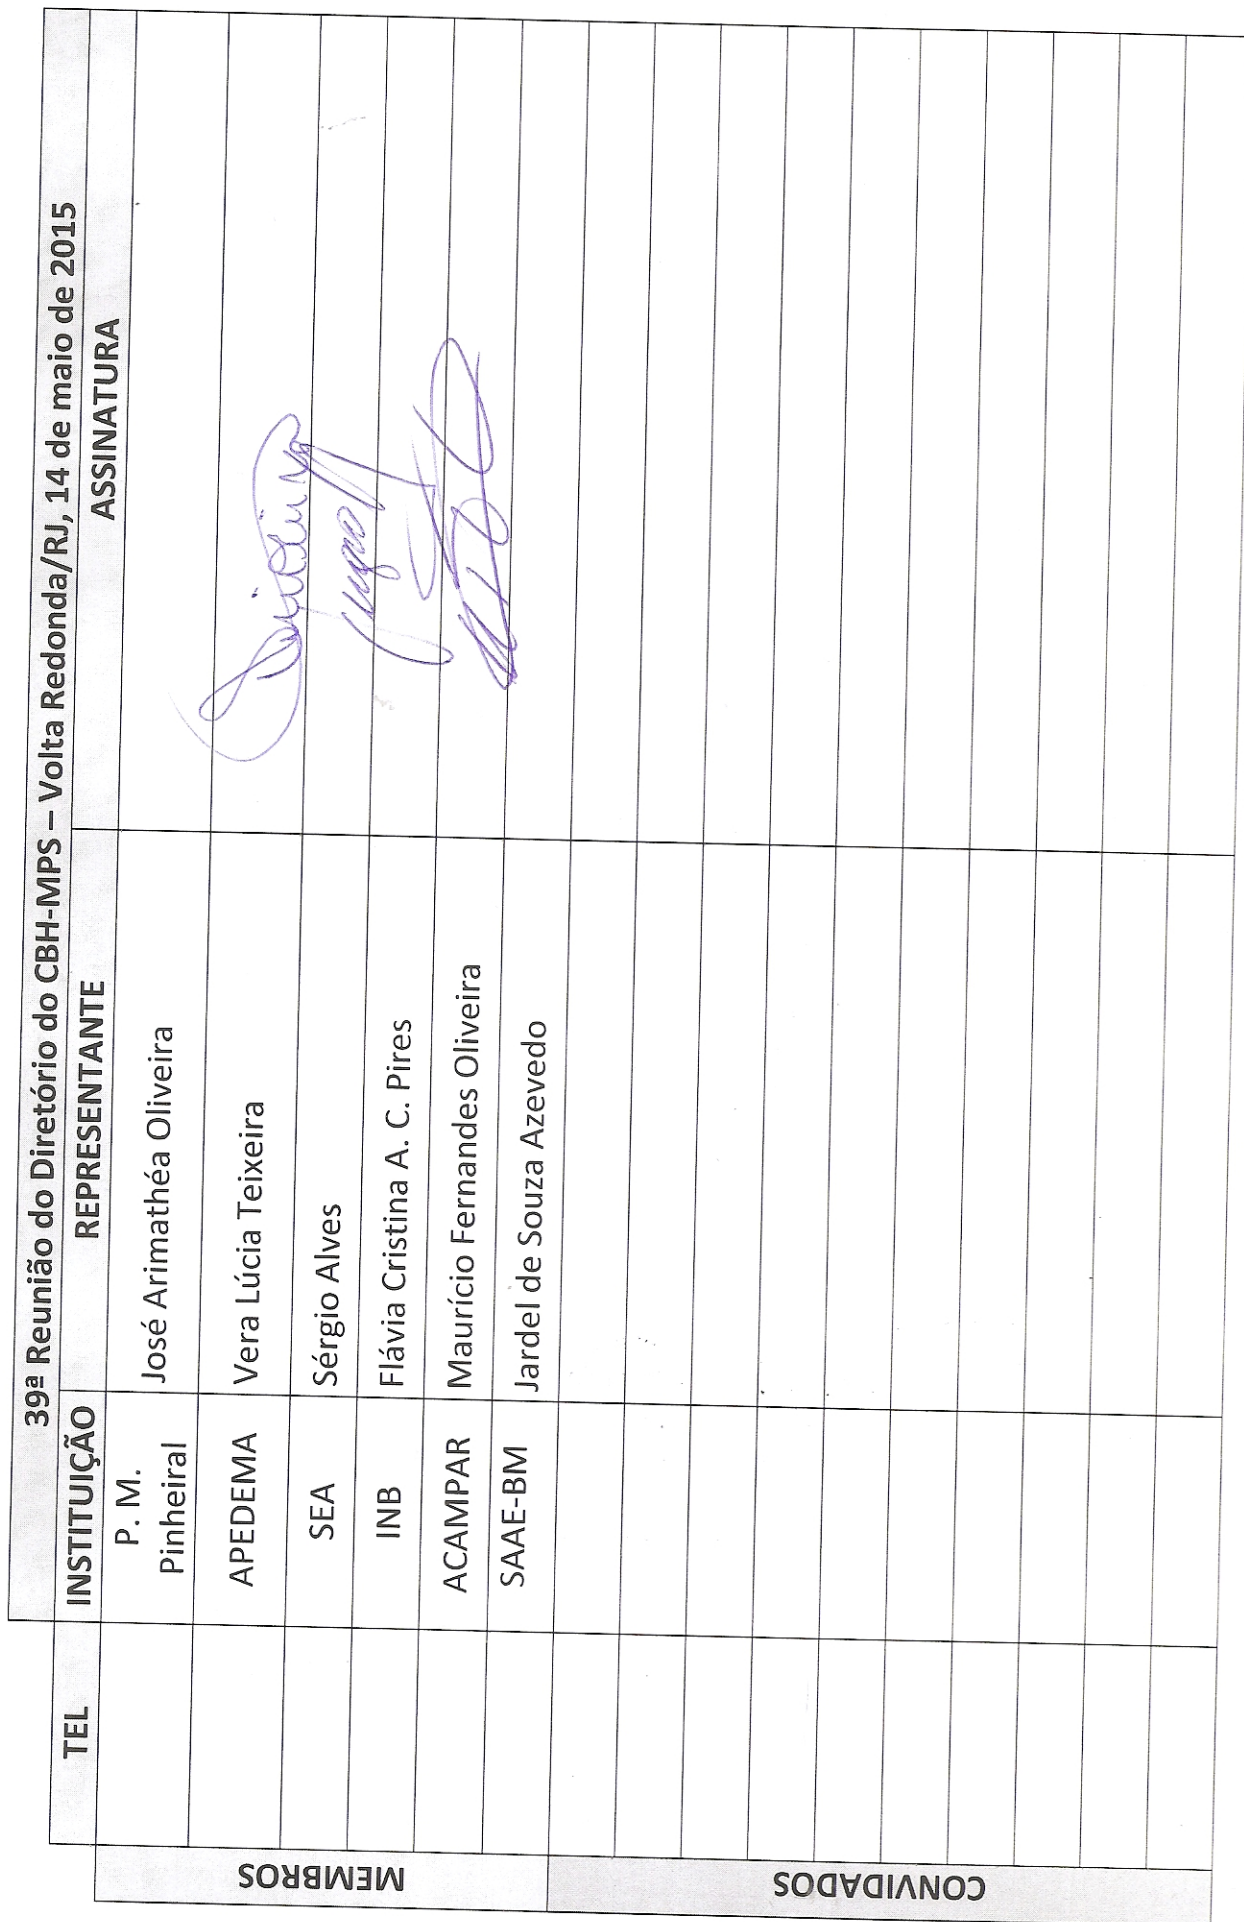 39ª Reunião do Diretório do CBH-MPS – Volta Redonda/RJ, 14 de maio de 2015
TEL INSTITUIÇÃO REPRESENTANTE ASSINATURA
MEMBROS
P. M.
Pinheiral José Arimathéa Oliveira
APEDEMA Vera Lúcia Teixeira
SEA Sérgio Alves
INB Flávia Cristina A. C. Pires
ACAMPAR Maurício Fernandes Oliveira
SAAE-BM Jardel de Souza Azevedo
CONVIDADOS